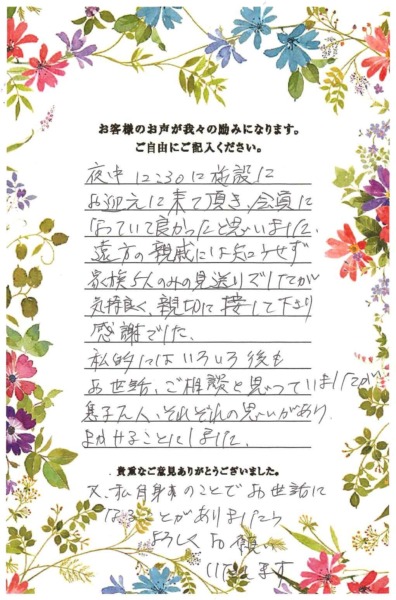 お客様のお声が我々の励みになります。
ご自由にご記入ください。
夜中12:30に施設に
お迎えに来て頂き、会員に
なっていて良かったと思いました。
遠方の親戚には知らせず
家族5人のみの見送りでしたが
気持良く、親切に接して下さり
感謝でした。
私的にはいろいろ後も
お世話、ご相談と思っていましたが
息子三人、それぞれの思いがあり
まかせることにしました。
貴重なご意見ありがとうございました。
又、私自身のことでお世話に
なることがありましたら
よろしくお願い
いたします